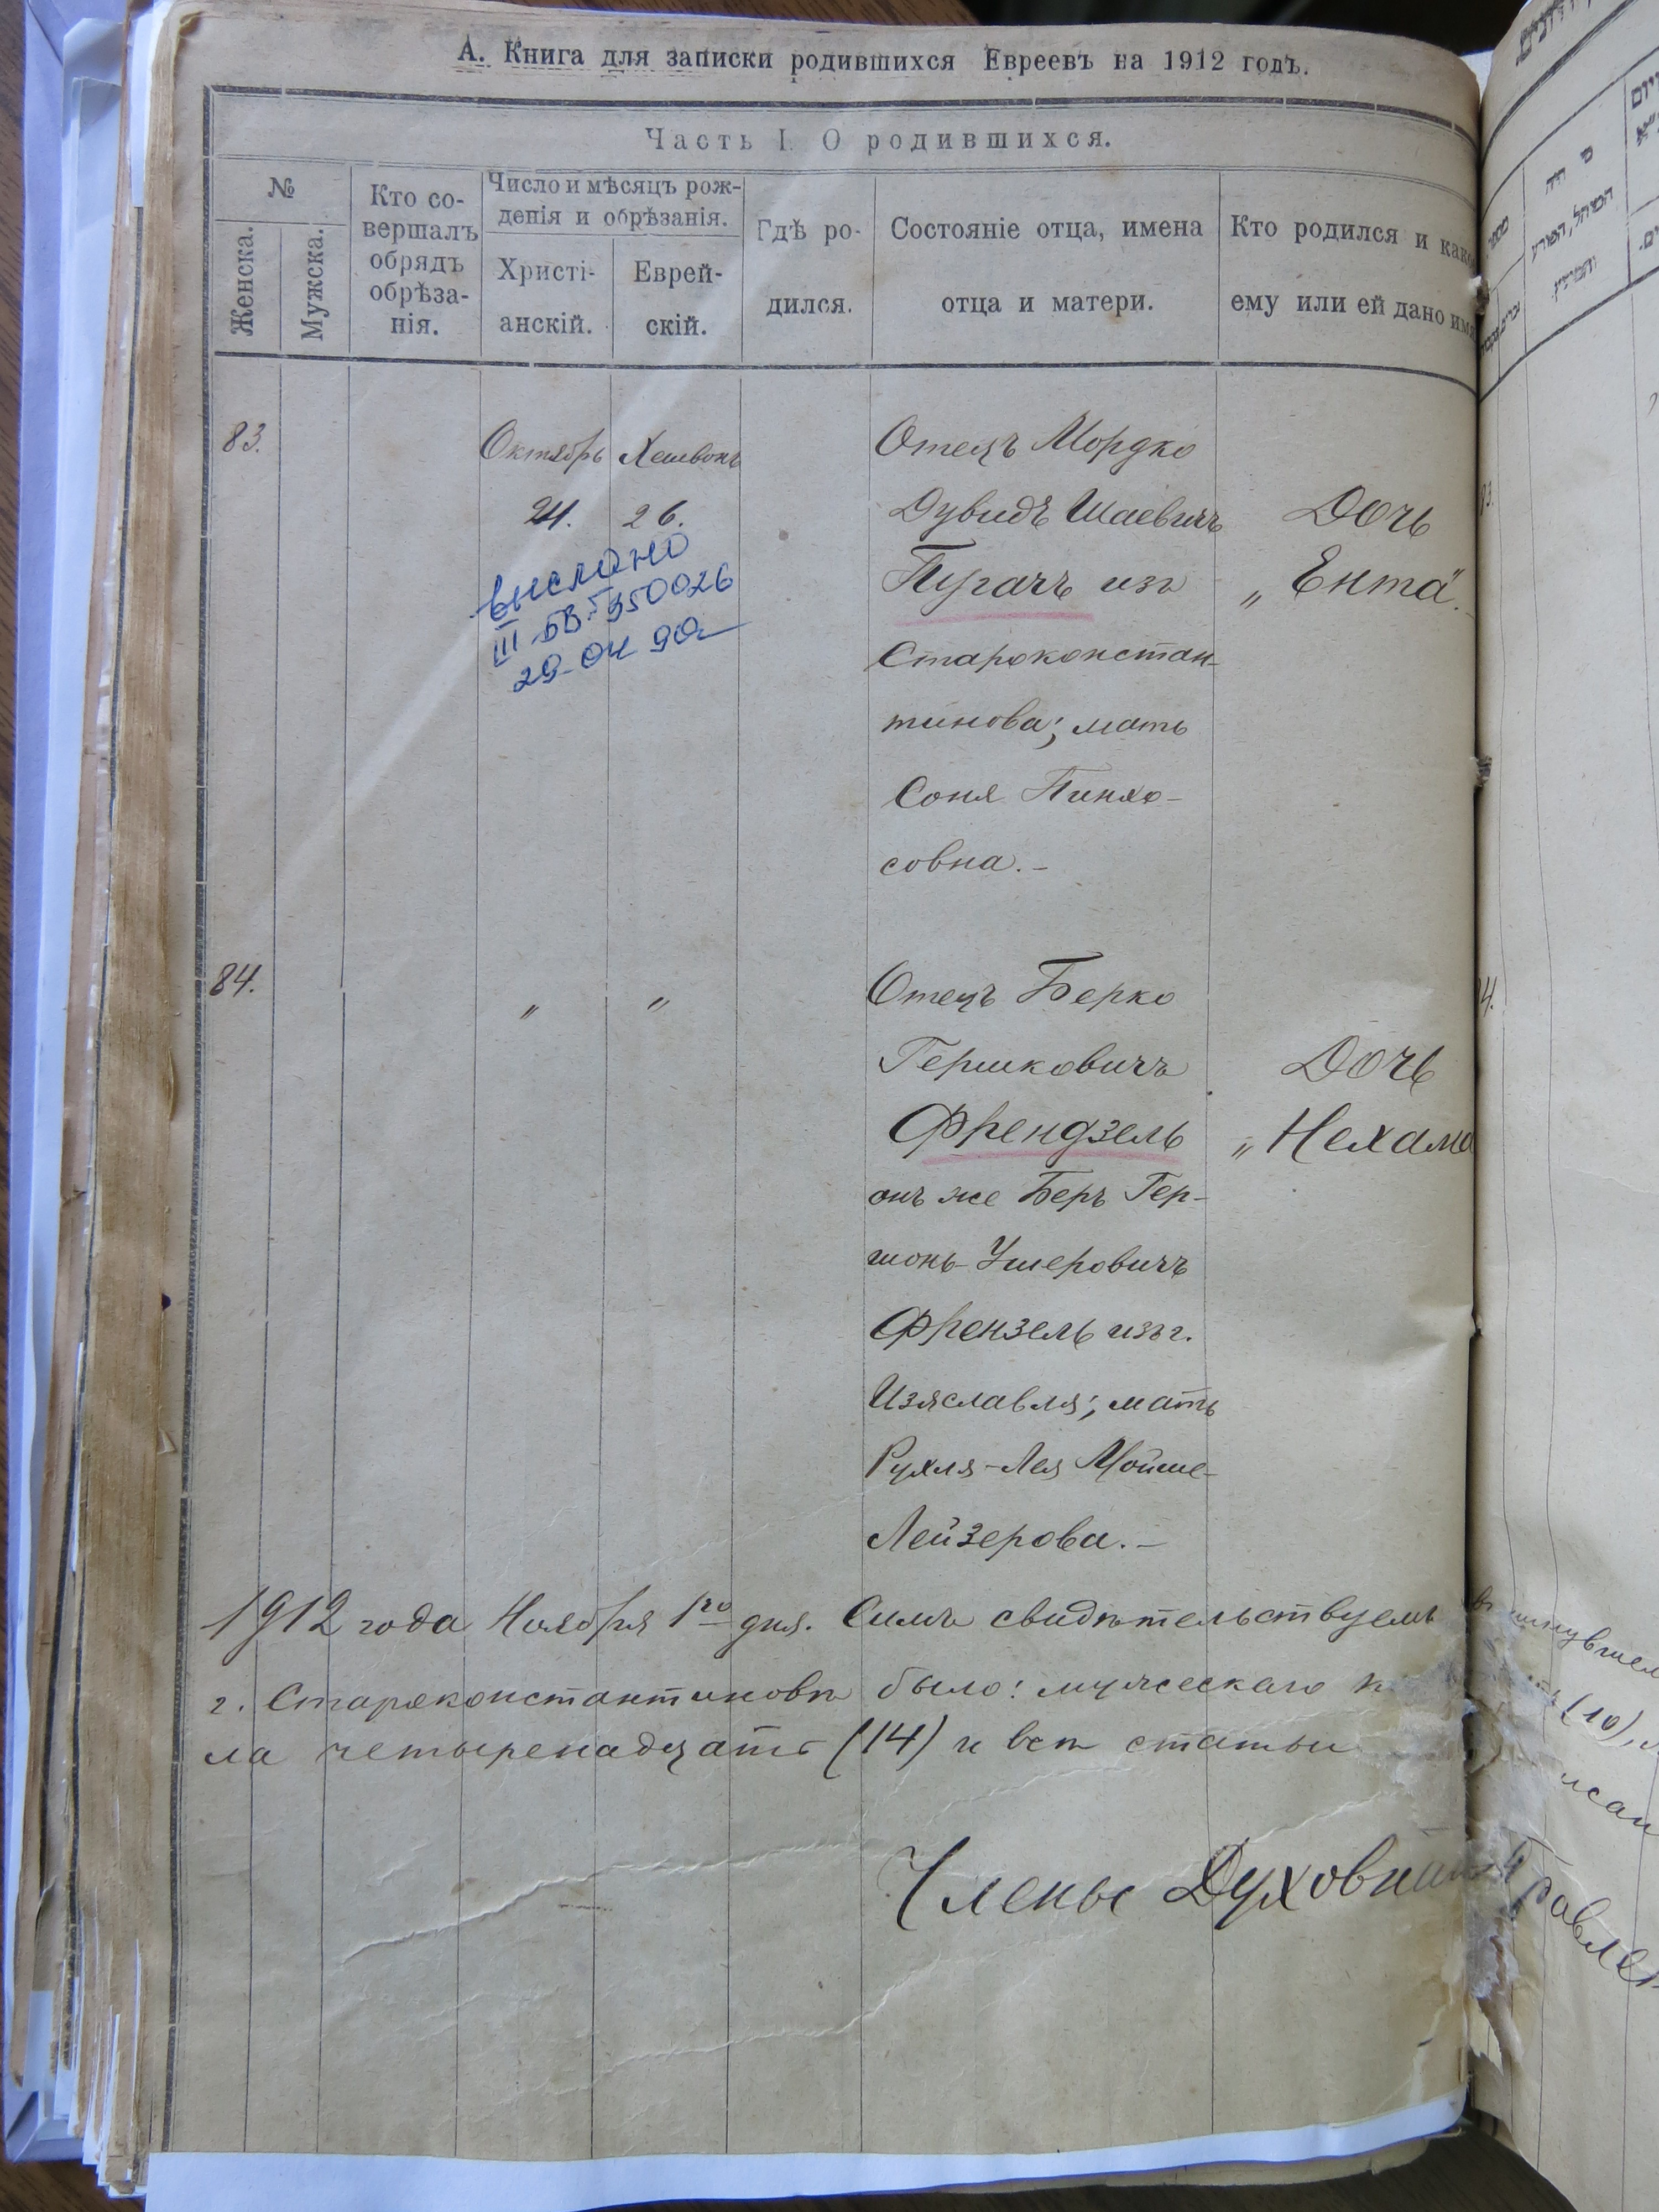 А. Книга для записки родившихся Евреевъ на 1912 годъ.
Часть I. О родившихся.
№
Женска.
Мужска.
Кто со-
вершалъ
обрядъ
обрѣза-
нія.
Число и мѣсяцъ рож-
денія и обрѣзанія.
Христі-
анскій.
Еврей-
скій.
Гдѣ ро-
дился.
Состояніе отца, имена
отца и матери.
Кто родился и како
ему или ей дано имя
83.
Октябрь
24.
Хешвонъ
26.
выслано
III БВ-950026
29-04 90
Отецъ Мордко
Дувидъ Шаевичъ
Пугачъ изъ
Староконстан-
тинова; мать
Соня Пинхо-
совна.-
Дочь
„Ента".
84.
„ „
Отецъ Берко
Гершковичъ
Френдзель
онъ же Беръ Гер-
шонъ-Ушеровичъ
Френзель изъ г.
Изяславля; мать
Рухля-Лея Мойше-
Лейзерова.-
Дочь
„Нехама
1912 года Ноября 1го дня. Симъ свидѣтельствуемъ
г. Староконстантиновѣ было: мужескаго
ла четыренадцать (14) и всѣ статьи
(10),
Члены Духовнаго